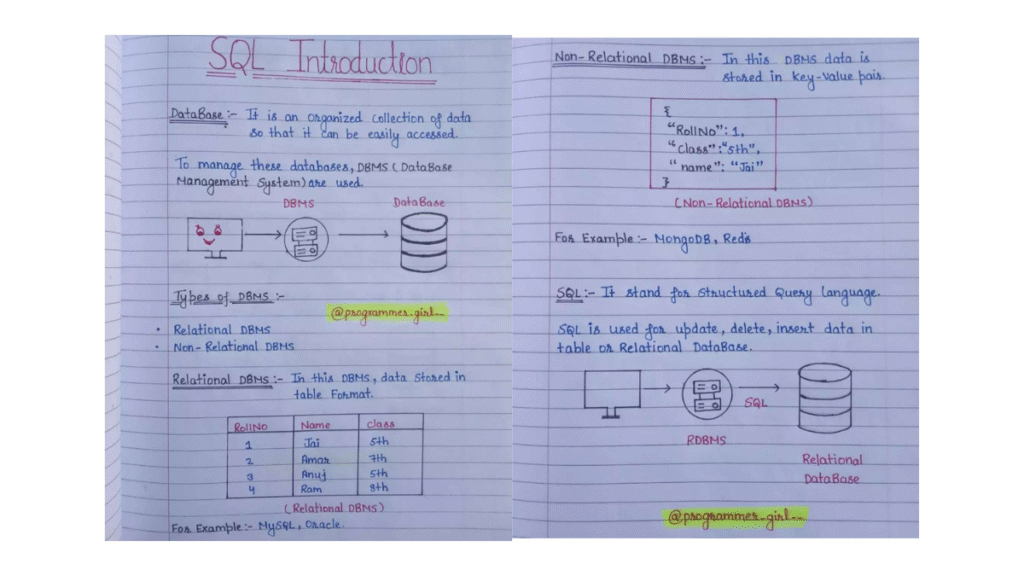 SQL Introduction
DataBase :- It is an organized collection of data
so that it can be easily accessed.
To manage these databases, DBMS (DataBase
Management System) are used.
DBMS
DataBase
Types of DBMS :-
@programmer.girl__
• Relational DBMS
• Non-Relational DBMS
Relational DBMS :- In this DBMS, data stored in
table Format.
RollNo Name class
1 Jai 5th
2 Amar 7th
3 Anuj 5th
4 Ram 8th
(Relational DBMS)
For Example :- MySQL, Oracle.
Non-Relational DBMS :- In this DBMS data is
stored in key-value pair.
{
"RollNo": 1,
"class":"5th",
"name": "Jai"
}
(Non-Relational DBMS)
For Example :- MongoDB, Redis
SQL :- It stand for Structured Query Language.
SQL is used for update, delete, insert data in
table or Relational DataBase.
SQL
RDBMS
Relational
DataBase
@programmer_girl__